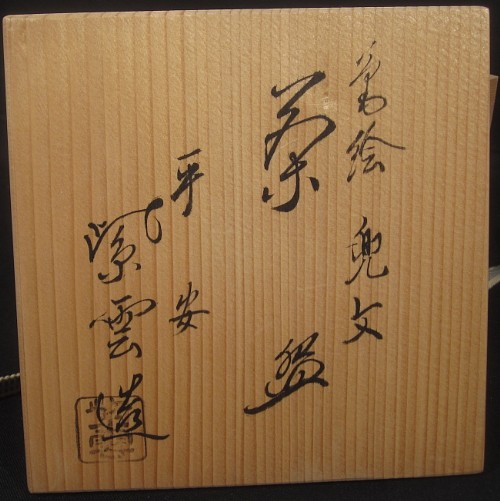 色絵 兜文
茶盌
平安
紫雲造